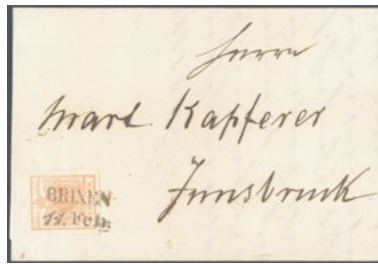 Herrn
Mart Kapferer
Innsbruck
BRIXEN
11. Feb: